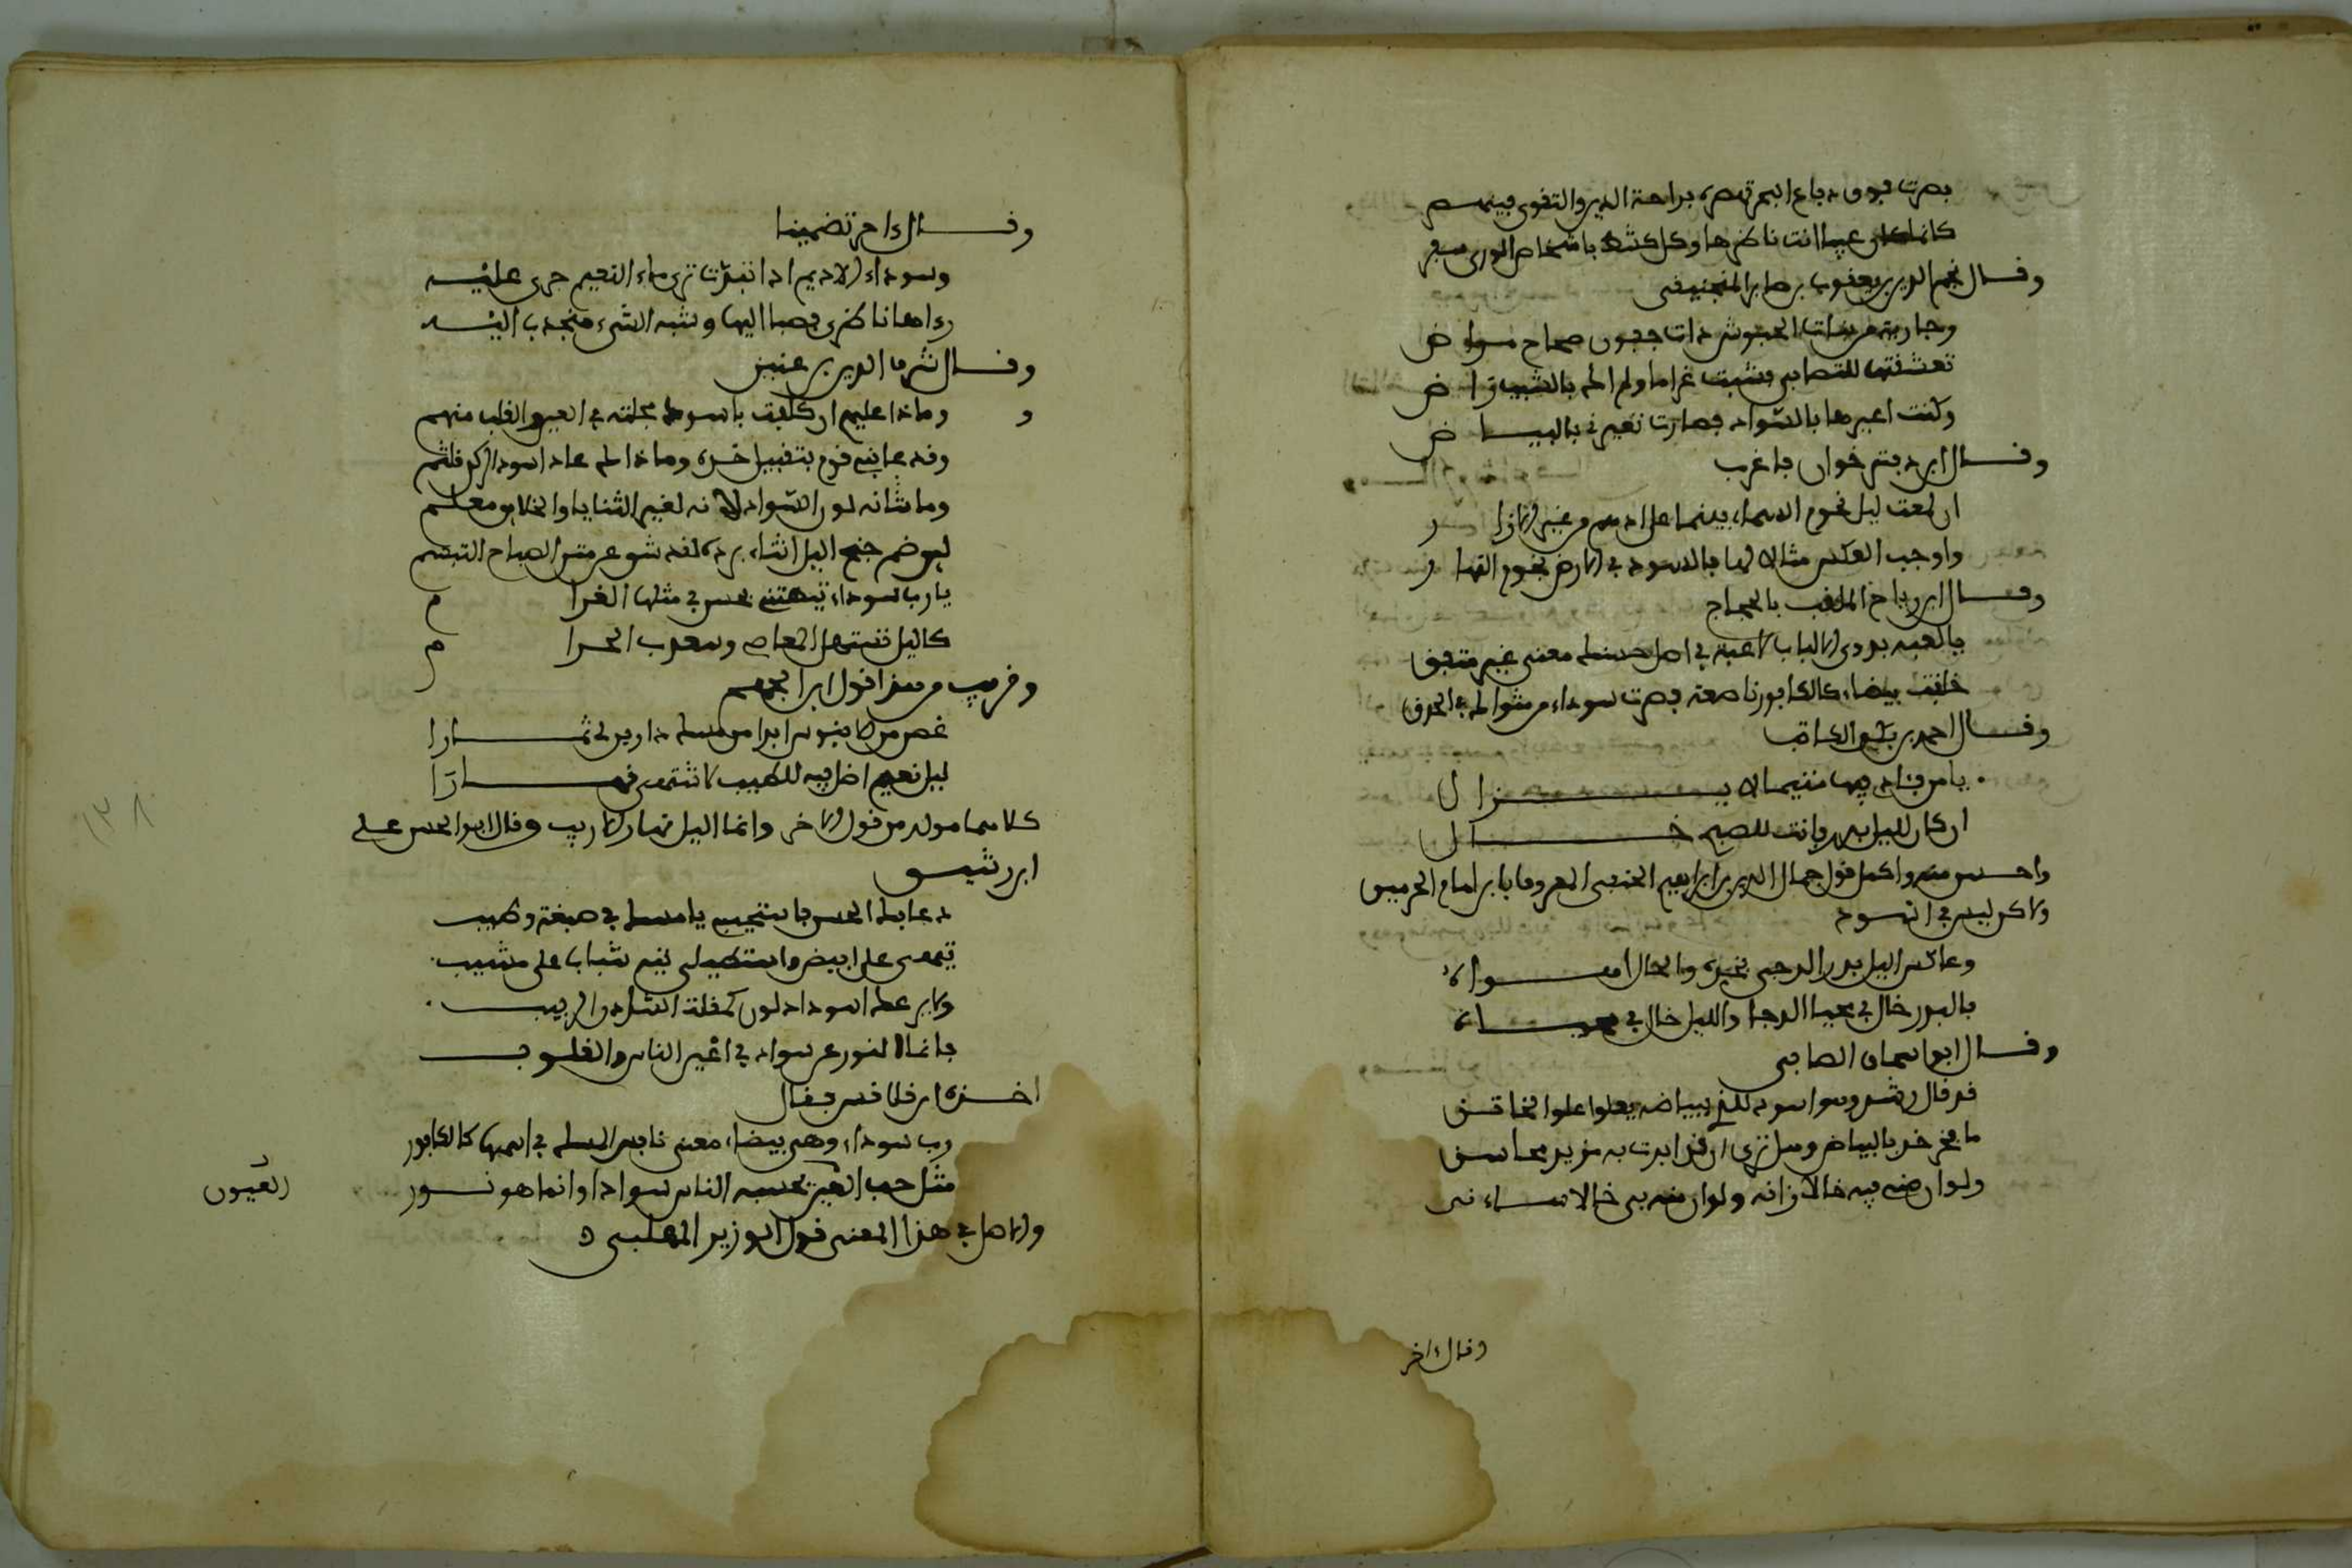 بصرت فوق دباع البحر تبصره براحة الدين والتقوى فينهسم
كانما كل عين انت ناظرها وكل باشخاص الورى سفر
وقال نجم الدين يعقوب بن صابر المنجنيقي
وجارية من بنات الحبوش ذات جفون صحاح مراض
تعشقتها للتصابي فشبت غراما ولم اك بالشيب راض
وكنت اعيرها بالسواد فصارت تعيرني بالبياض
وقال ابن خوان فاغرب
ان لمعت ليل نجوم السماء بيضا على ادهم من غير الازار
واوجب العكس مثالا لها فالسود في الارض نجوم النهار
وقال ابن رباح الملقب بالحجاج
يا لعبة بذوي الالباب لاعبة في اصل حسنك معنى غير متفق
خلقت بيضاء كالكافور ناصعة فصرت سوداء من مثواك في الحدق
وقال احمد بن بكر الكاتب
يا من فؤادي فيها متيما لا يزال
ان كان لليل بدر فانت للصبح خال
واحسن منه واكمل قول جمال الدين بن ابراهيم الحنفي المعروف بابن امام الحرمين
ولاكن ليس في السود
وعاكس اليل بدر الدجى بخده والخال امواه
فالبدر خال في محيا الدجا والليل خال في محياه
وقال ابو اسحاق الصابي
قد قال رشد وهو اسود للذي ببياضه يعلوا علوا الخاتن
ما فخر خدك بالبياض وهل ترى ان قد افدت به مزيد محاسن
ولو ان مني فيه خالا زانه ولو ان منه بي خالا شانني
وقال ءاخر
وقال ءاخر تضمينا
وسوداء الاديم اذا تبدت ترى ماء النعيم جرى عليه
رءاها ناظري فصبا اليها وشبه الشيء منجذب اليه
وقال شرف الدين بن عنين
وماذا عليهم ان كلفت باسود محلته في العين والقلب منهم
وقد عابني قوم بتقبيل خده وماذاك عار اسود الركن يلثم
وما شانه لون السواد لانه لغير الثنايا والخلايق معلم
لهوضم جنح اليل اثناء برده لقد شق عن متن الصباح التبسم
يا رب سوداء تيمتني يحسن في مثلها الغرام
كاليل تستسهل المعاصي ويعذب الحرام
وقريب من هذا قول ابن الجهم
غصن من الابنوس ابدا من مسك دارين لي ثمارا
ليل نعيم اظل فيه للطيب لا نشتهي نهارا
كلاهما مولد من قول الاخر وانما اليل نهار الاريب وقال ابو الحسن علي
ابن رشيق
دعا بك الحسن فاستجيب يا مسك في صبغة وطيب
تيهي على البيض واستطيلي تيه شباب على مشيب
ولا يرعك اسوداد لون كمقلة الشادن الربيب
فانما النور عن سواد في اعين الناس والقلوب
اخذه ابن قلاقس فقال
رب سوداء وهي بيضاء معنى نافس المسك في اسمها كالكافور
مثل حب العيون يحسبه الناس سوادا وانما هو نور
والاصل في هذا المعنى قول الوزير المهلبي
العيون
١٣٨